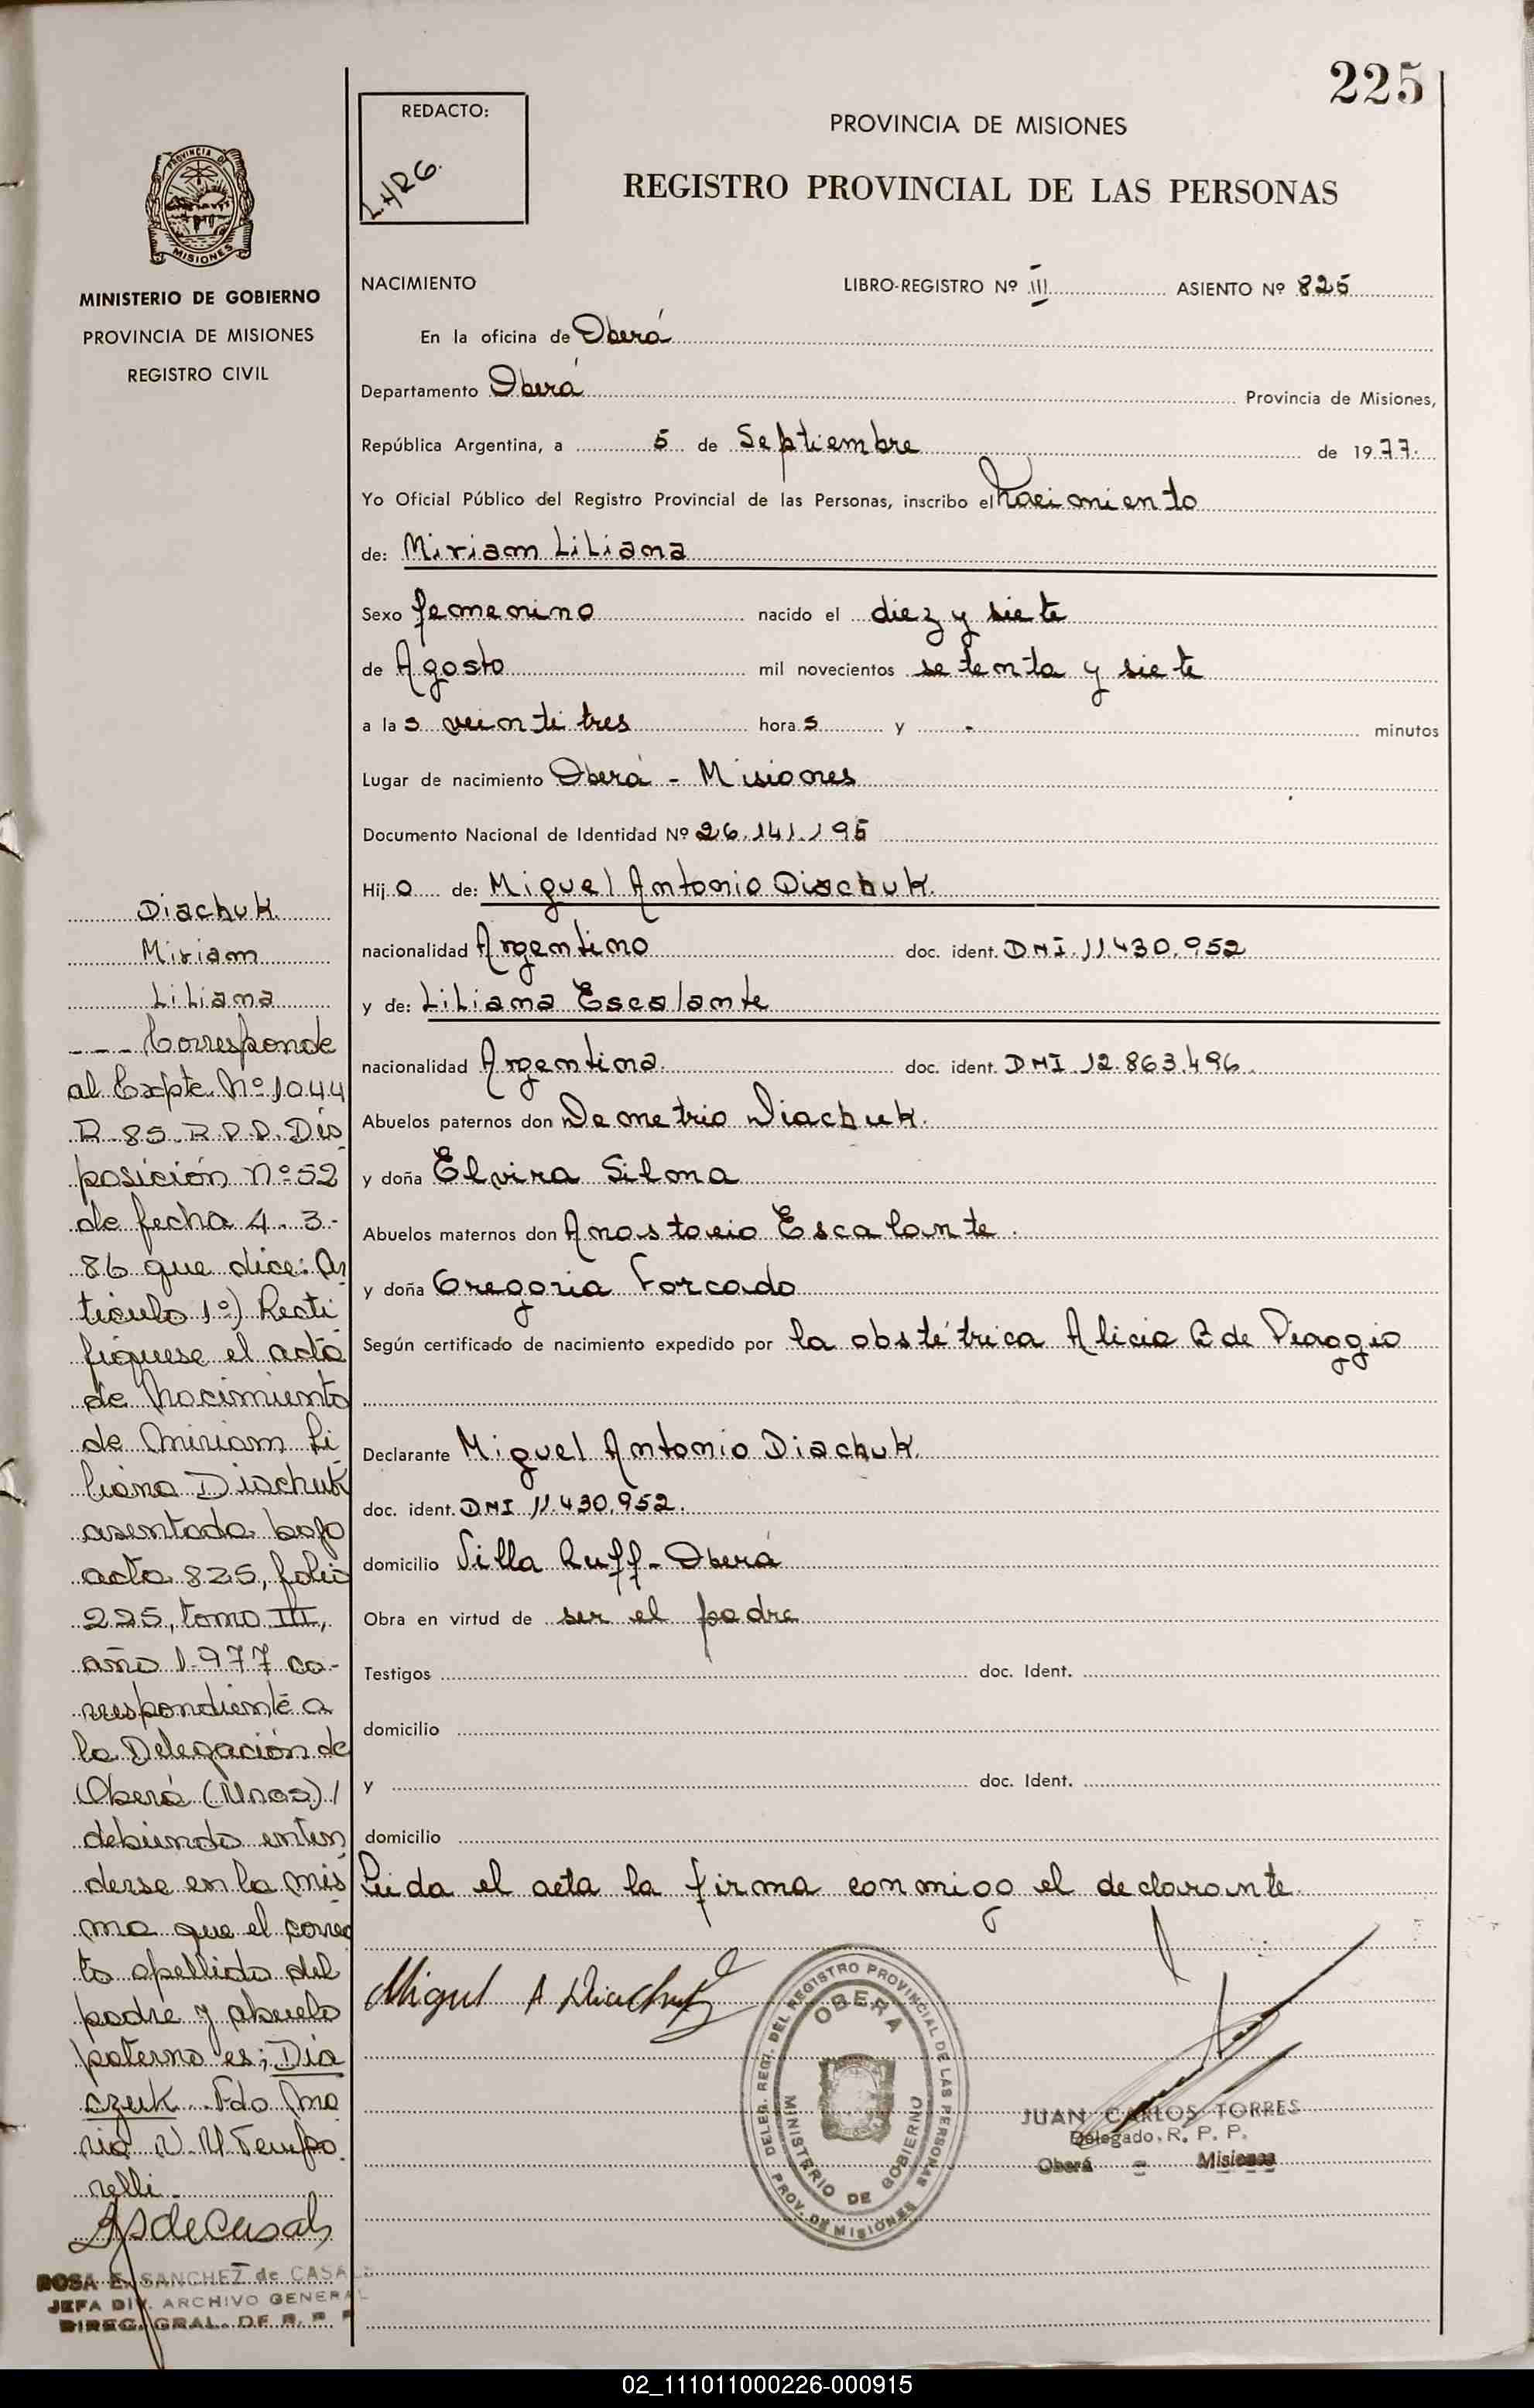 225
REDACTO:
LHRG.
PROVINCIA DE MISIONES
REGISTRO PROVINCIAL DE LAS PERSONAS
PROVINCIA DE
MISIONES
MINISTERIO DE GOBIERNO
PROVINCIA DE MISIONES
REGISTRO CIVIL
NACIMIENTO LIBRO-REGISTRO Nº III ASIENTO Nº 825
En la oficina de Oberá
Departamento Oberá Provincia de Misiones,
República Argentina, a 5 de Septiembre de 1977.
Yo Oficial Público del Registro Provincial de las Personas, inscribo el Nacimiento
de: Miriam Liliana
Sexo femenino nacido el diez y siete
de Agosto mil novecientos setenta y siete
a las veintitres horas y - minutos
Lugar de nacimiento Oberá - Misiones
Documento Nacional de Identidad Nº 26.141.195
Hijo de: Miguel Antonio Diachuk.
nacionalidad Argentino doc. ident. DNI. 11.430.952
y de: Liliana Escalante
nacionalidad Argentina. doc. ident. DNI 12.863.496.
Abuelos paternos don Demetrio Diachuk.
y doña Elvira Silma
Abuelos maternos don Anastacio Escalante.
y doña Gregoria Forcado
Según certificado de nacimiento expedido por la obstétrica Alicia B de Piaggio
Declarante Miguel Antonio Diachuk.
doc. ident. DNI 11.430.952.
domicilio Villa Ruff - Oberá
Obra en virtud de ser el padre
Testigos doc. Ident.
domicilio
y doc. Ident.
domicilio
Leida el acta la firma conmigo el declarante.
Miguel A Diachuk
DELEG. REGI. DEL REGISTRO PROVINCIAL DE LAS PERSONAS
OBERA
MINISTERIO DE GOBIERNO
PROV. DE MISIONES
JUAN CARLOS TORRES
Delegado. R. P. P.
Oberá - Misiones
Diachuk
Miriam
Liliana
--- Corresponde
al Expte. Nº 1044
R 85 R.P.P. Dis
posición Nº 52
de fecha 4-3-
86 que dice: Ar
tículo 1º) Recti
fiquese el acta
de Nacimiento
de Miriam Li
liana Diachuk
asentada bajo
acta 825, folio
225, tomo III,
año 1977 co-
rrespondiente a
la Delegación de
Oberá (Mnes) /
debiendo enten
derse en la mis
ma que el correc
to apellido del
padre y abuelo
paterno es; Dia
czuk. Fdo Ma
ria N. U Tempo
relli.
RSdeCasals
ROSA E. SANCHEZ de CASALS
JEFA DIV. ARCHIVO GENERAL
DIREC. GRAL. DE R. P. P
02_111011000226-000915